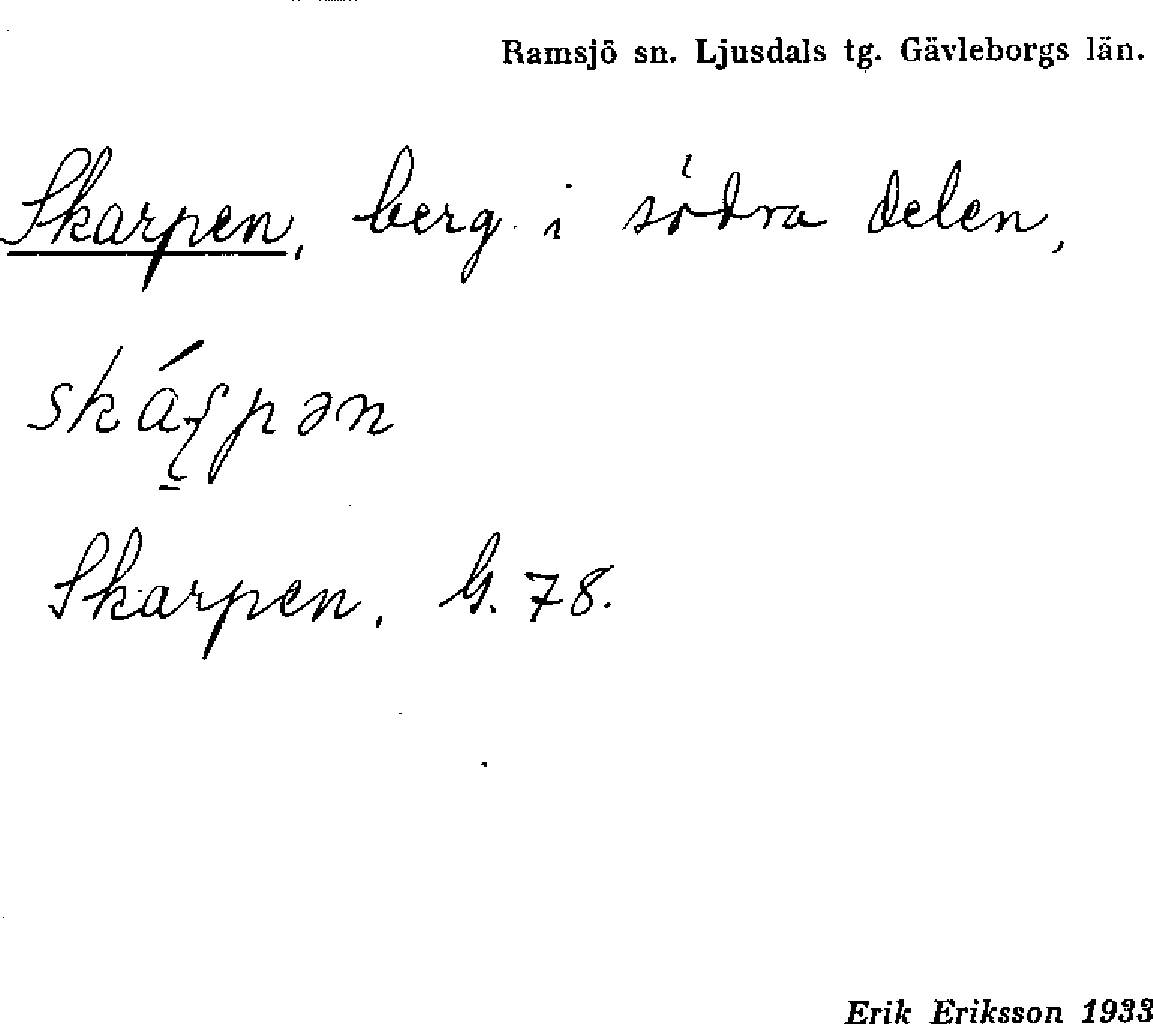 Ramsjö sn. Ljusdals tg. Gävleborgs län.
Skarpen, berg i södra delen,
skárpən
Skarpen. G. 78.
Erik Eriksson 1933